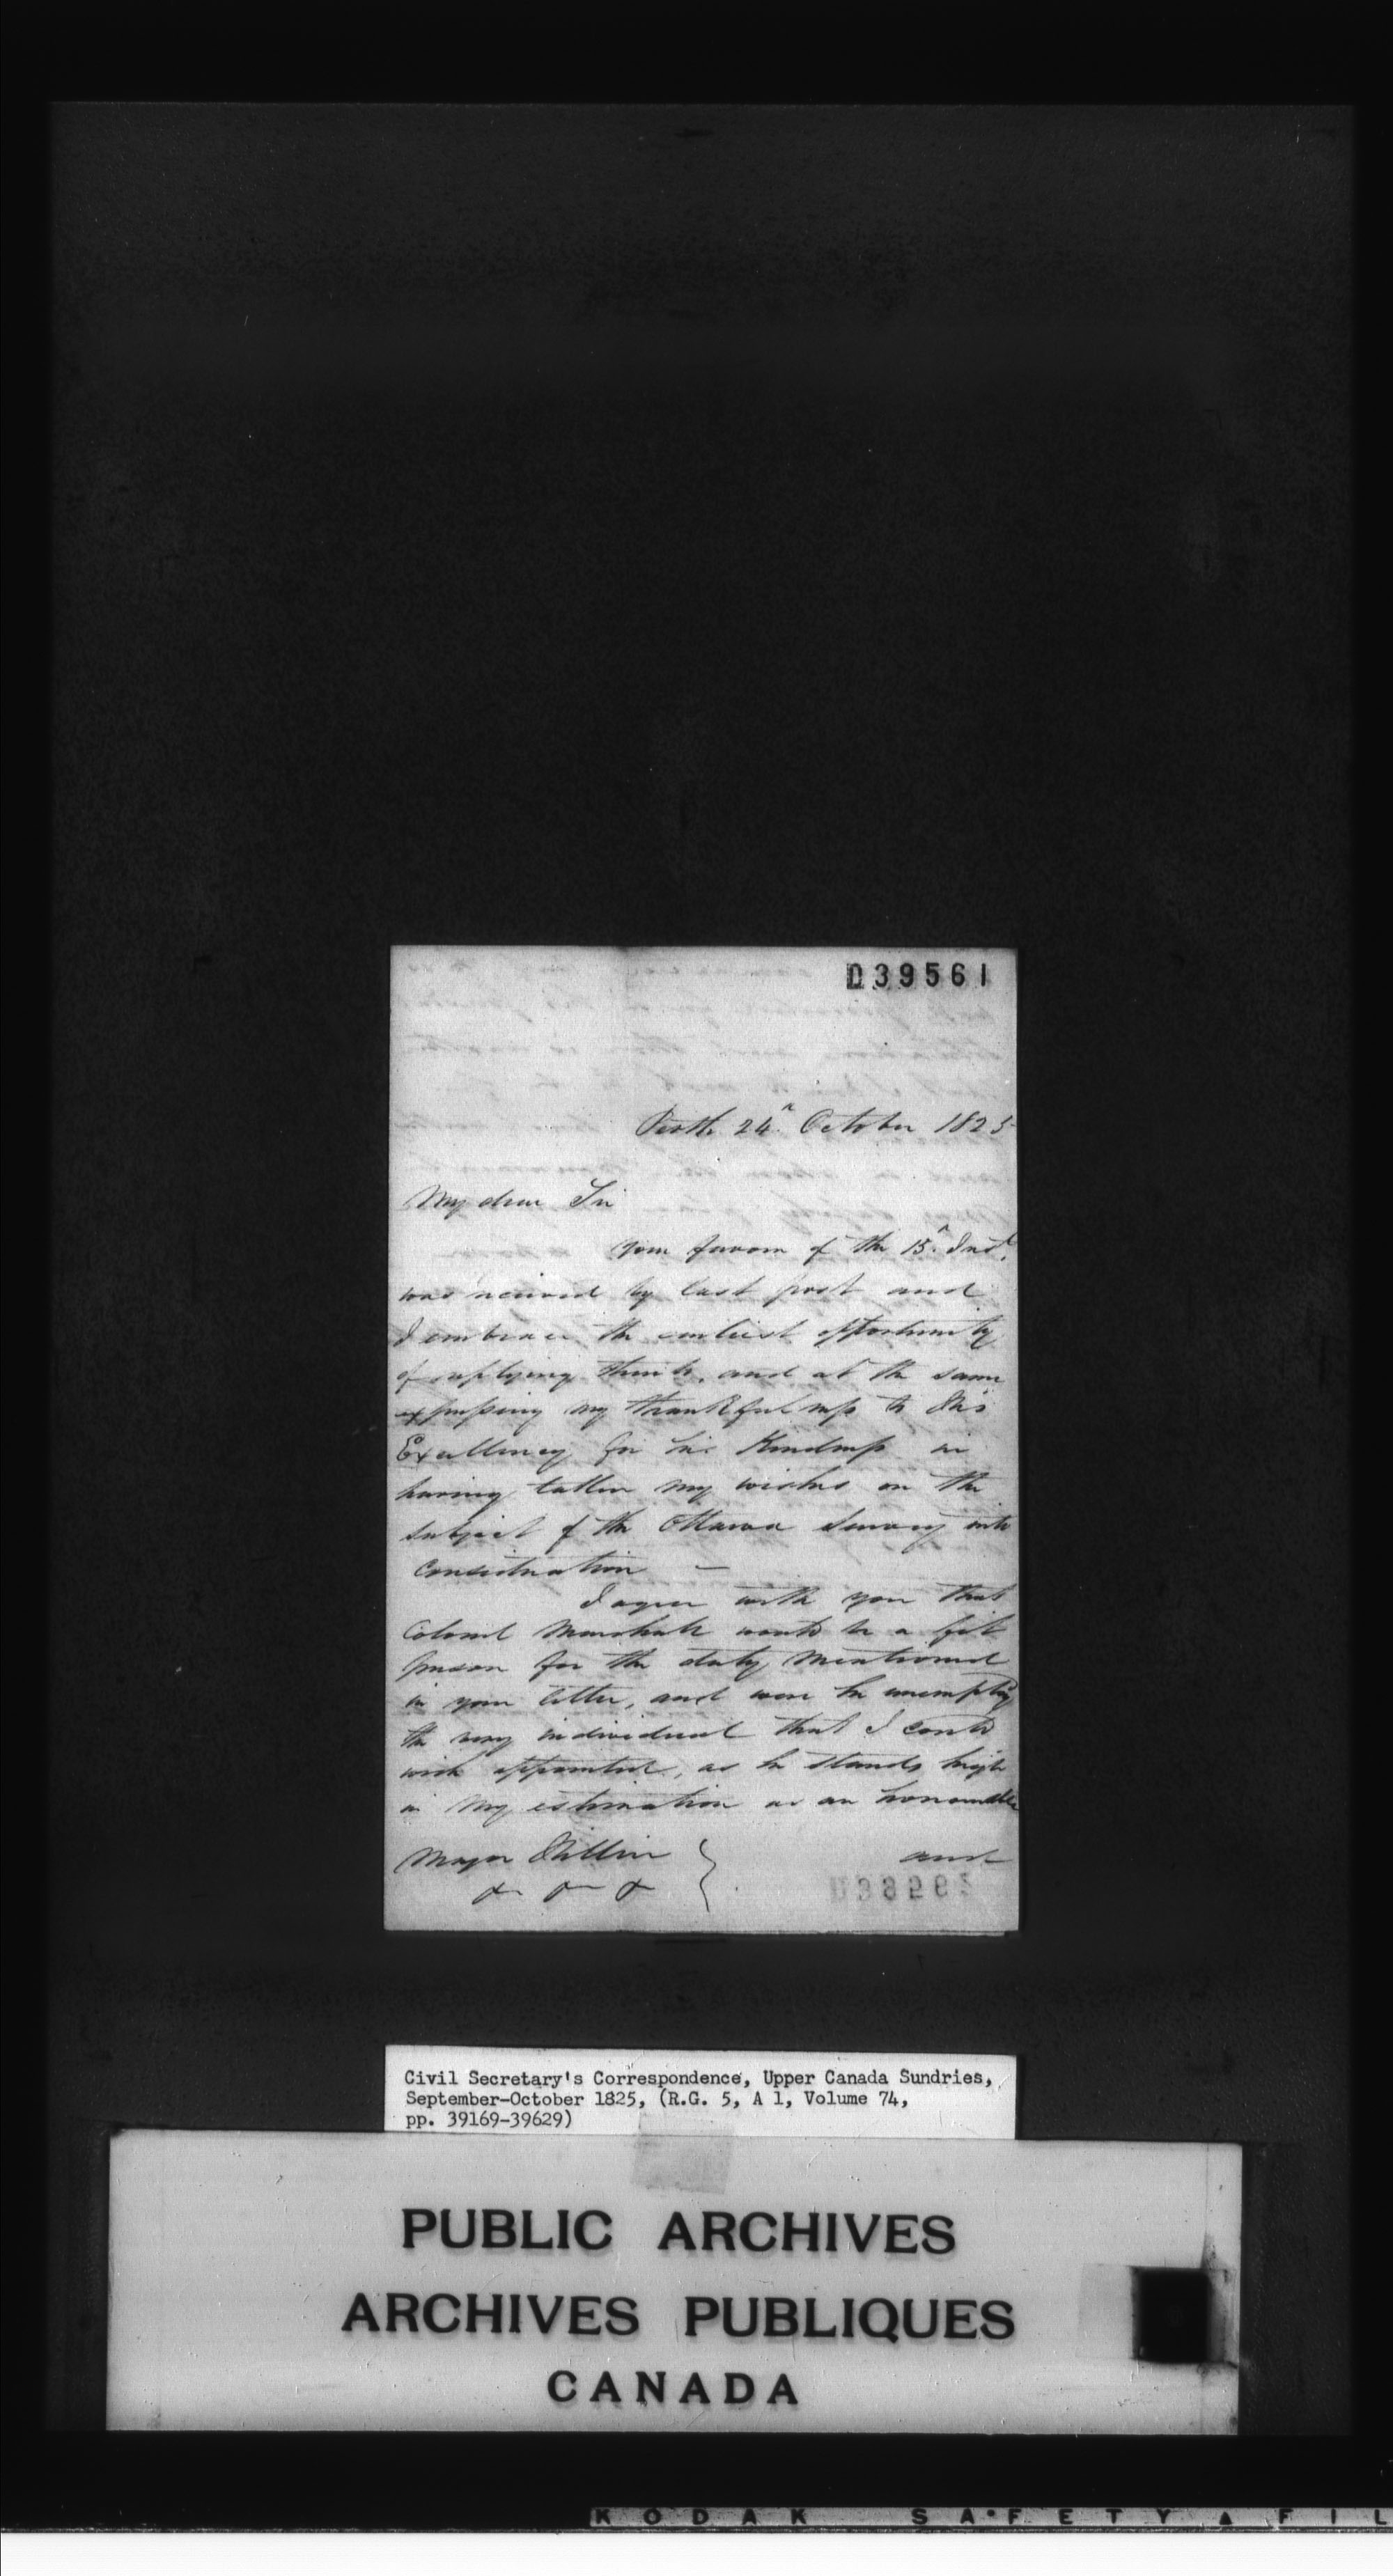 039561
Perth 24th October 1825
My dear Sir
your favor of the 15th Inst.
was received by last post and
I embrace the earliest opportunity
of replying thereto, and at the same
expressing my thankfulness to His
Excellency for his Kindness in
having taken my wishes on the
subject of the Ottawa Survey into
consideration —
I agree with you that
Colonel Marshall would be a fit
person for the duty mentioned
in your letter, and were he unemployed
the very individual that I could
wish appointed, as he stands high
in my estimation as an honourable
Major Hillier
and
&c &c &c
Civil Secretary's Correspondence, Upper Canada Sundries,
September-October 1825, (R.G. 5, A 1, Volume 74,
pp. 39169-39629)
PUBLIC ARCHIVES
ARCHIVES PUBLIQUES
CANADA
KODAK SAFETY FIL